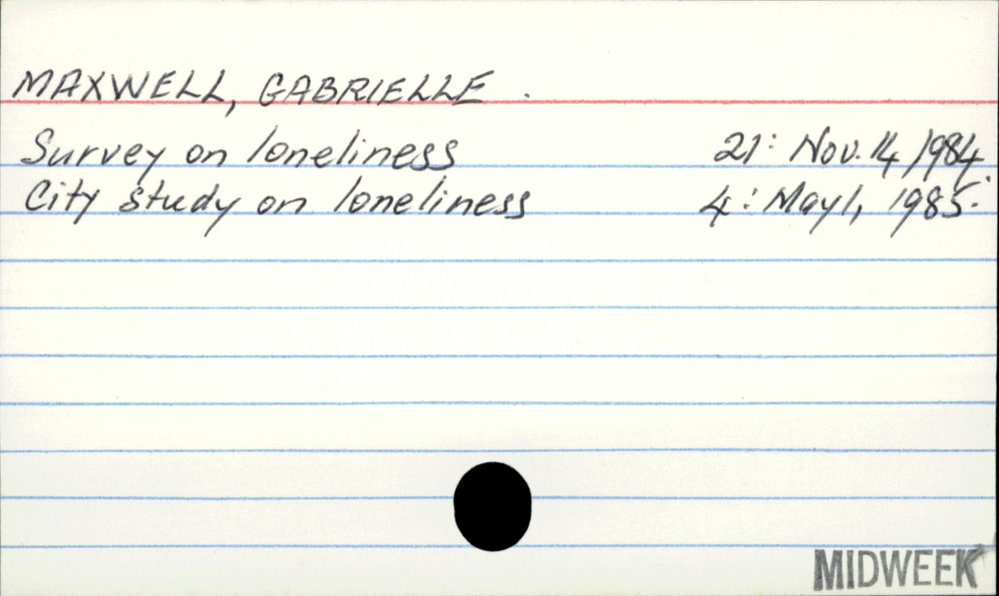 MAXWELL, GABRIELLE.
Survey on loneliness 21: Nov. 14, 1984.
City study on loneliness 4: May 1, 1985.
MIDWEEK